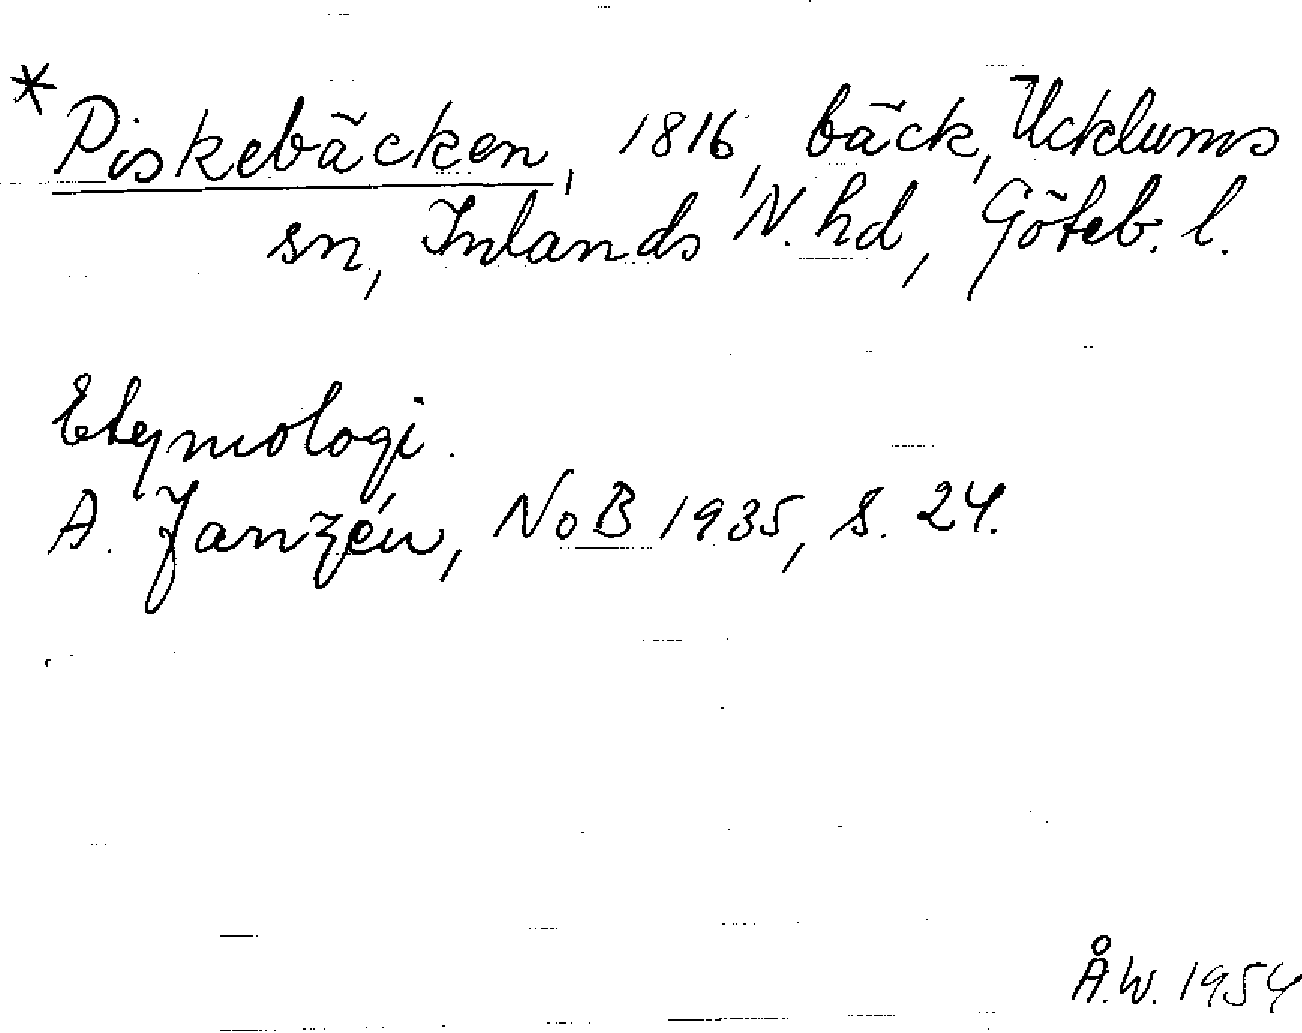 *Piskebäcken, 1816, bäck, Ucklums
sn, Inlands N. hd, Göteb. l.
Etymologi.
A. Janzén, NoB 1935, s. 24.
Å.W. 1954